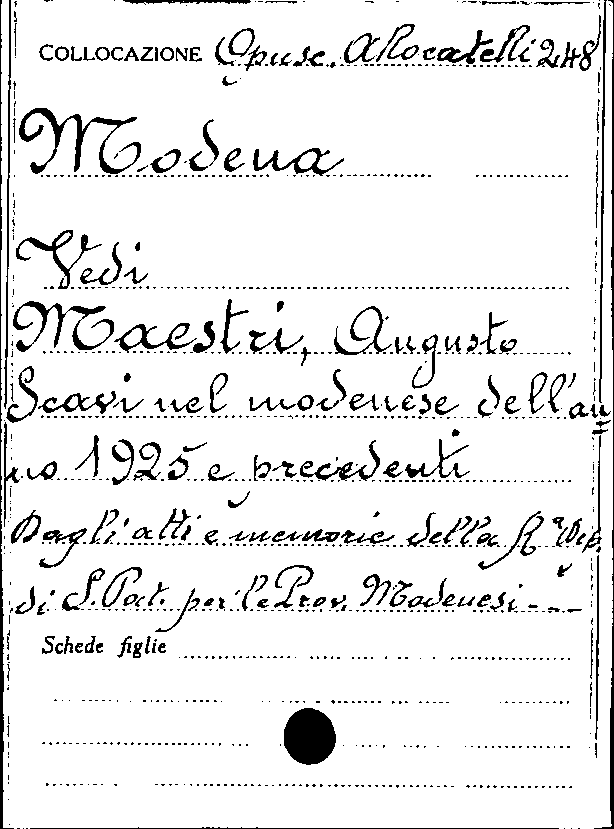 COLLOCAZIONE Opusc. A Rocatelli 248
Modena
Vedi
Maestri, Augusto
Scavi nel modenese dell'an=
no 1925 e precedenti
Dagli atti e memorie della Rª Dep.
di S. Pat. per le Prov. Modenesi - - -
Schede figlie